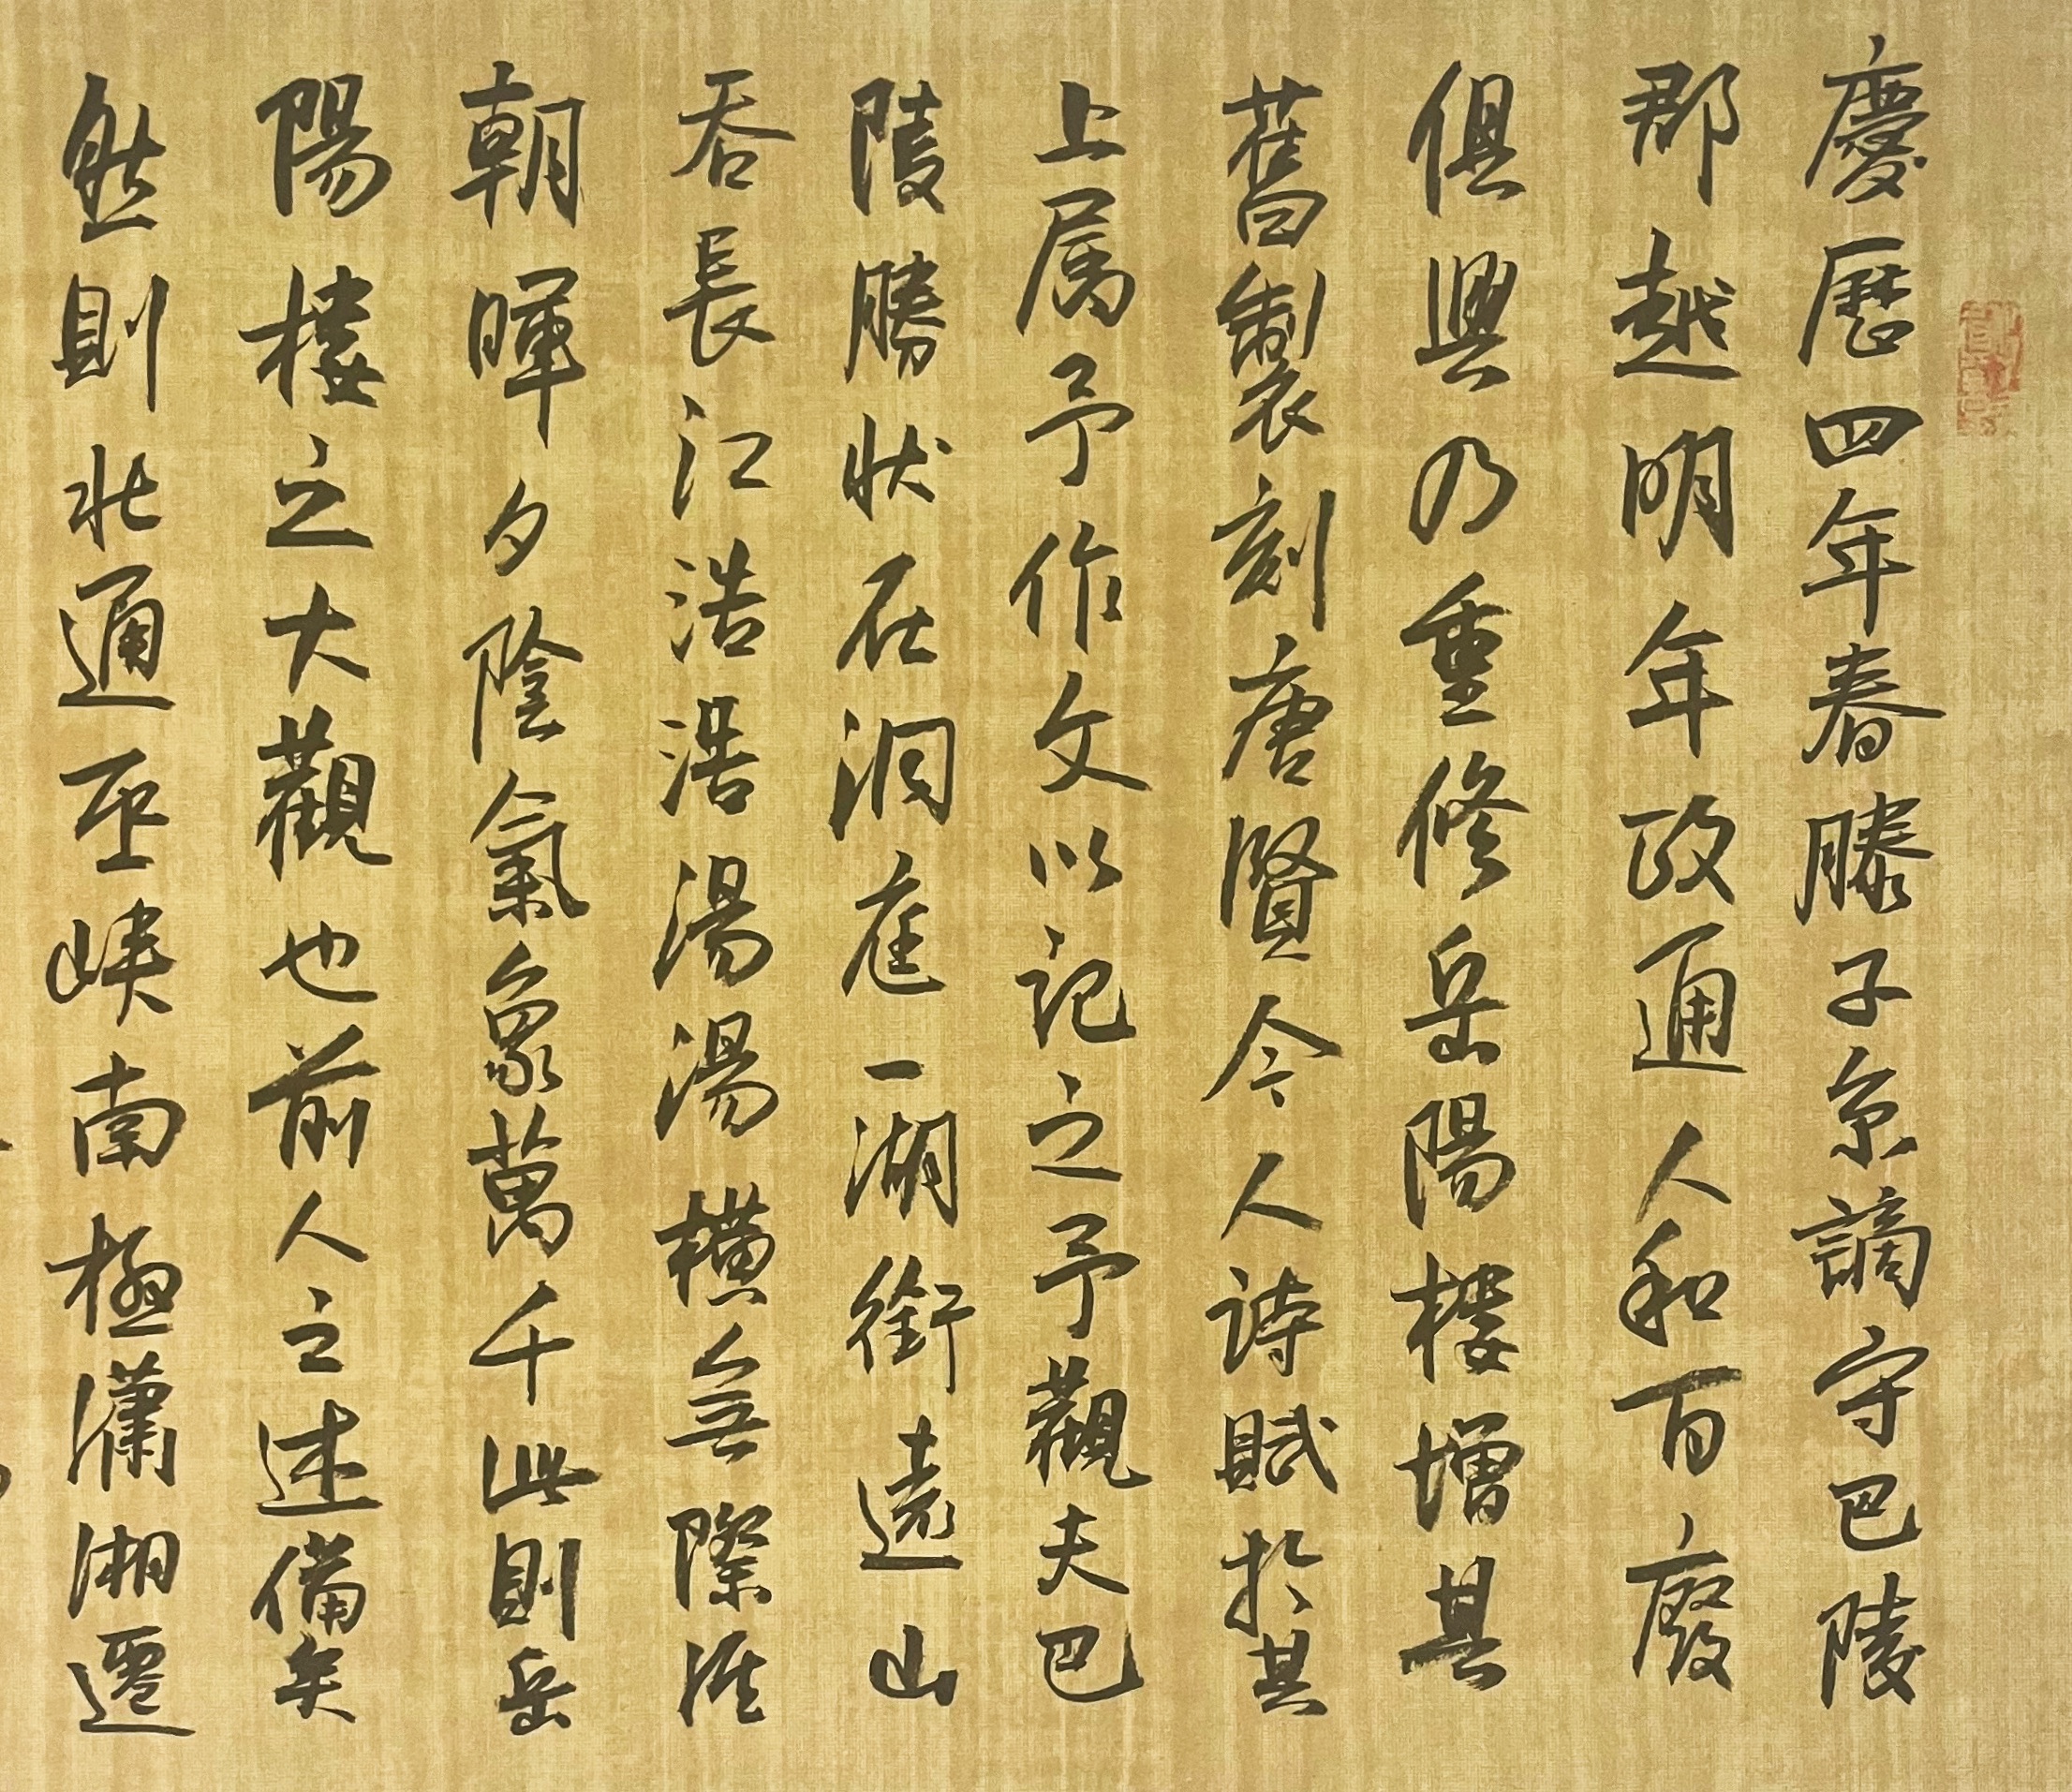 慶曆四年春滕子京謫守巴陵
郡越明年政通人和百廢
俱興乃重修岳陽樓增其
舊製刻唐賢今人詩賦於其
上属予作文以記之予觀夫巴
陵勝狀在洞庭一湖銜遠山
吞長江浩浩湯湯橫無際涯
朝暉夕陰氣象萬千此則岳
陽樓之大觀也前人之述備矣
然則北通巫峽南極瀟湘遷